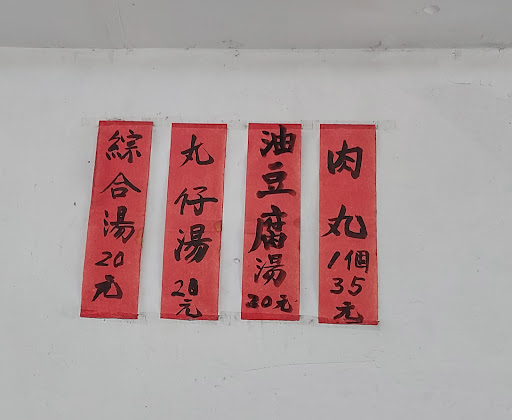 肉丸1個35元
油豆腐湯20元
丸仔湯20元
綜合湯20元